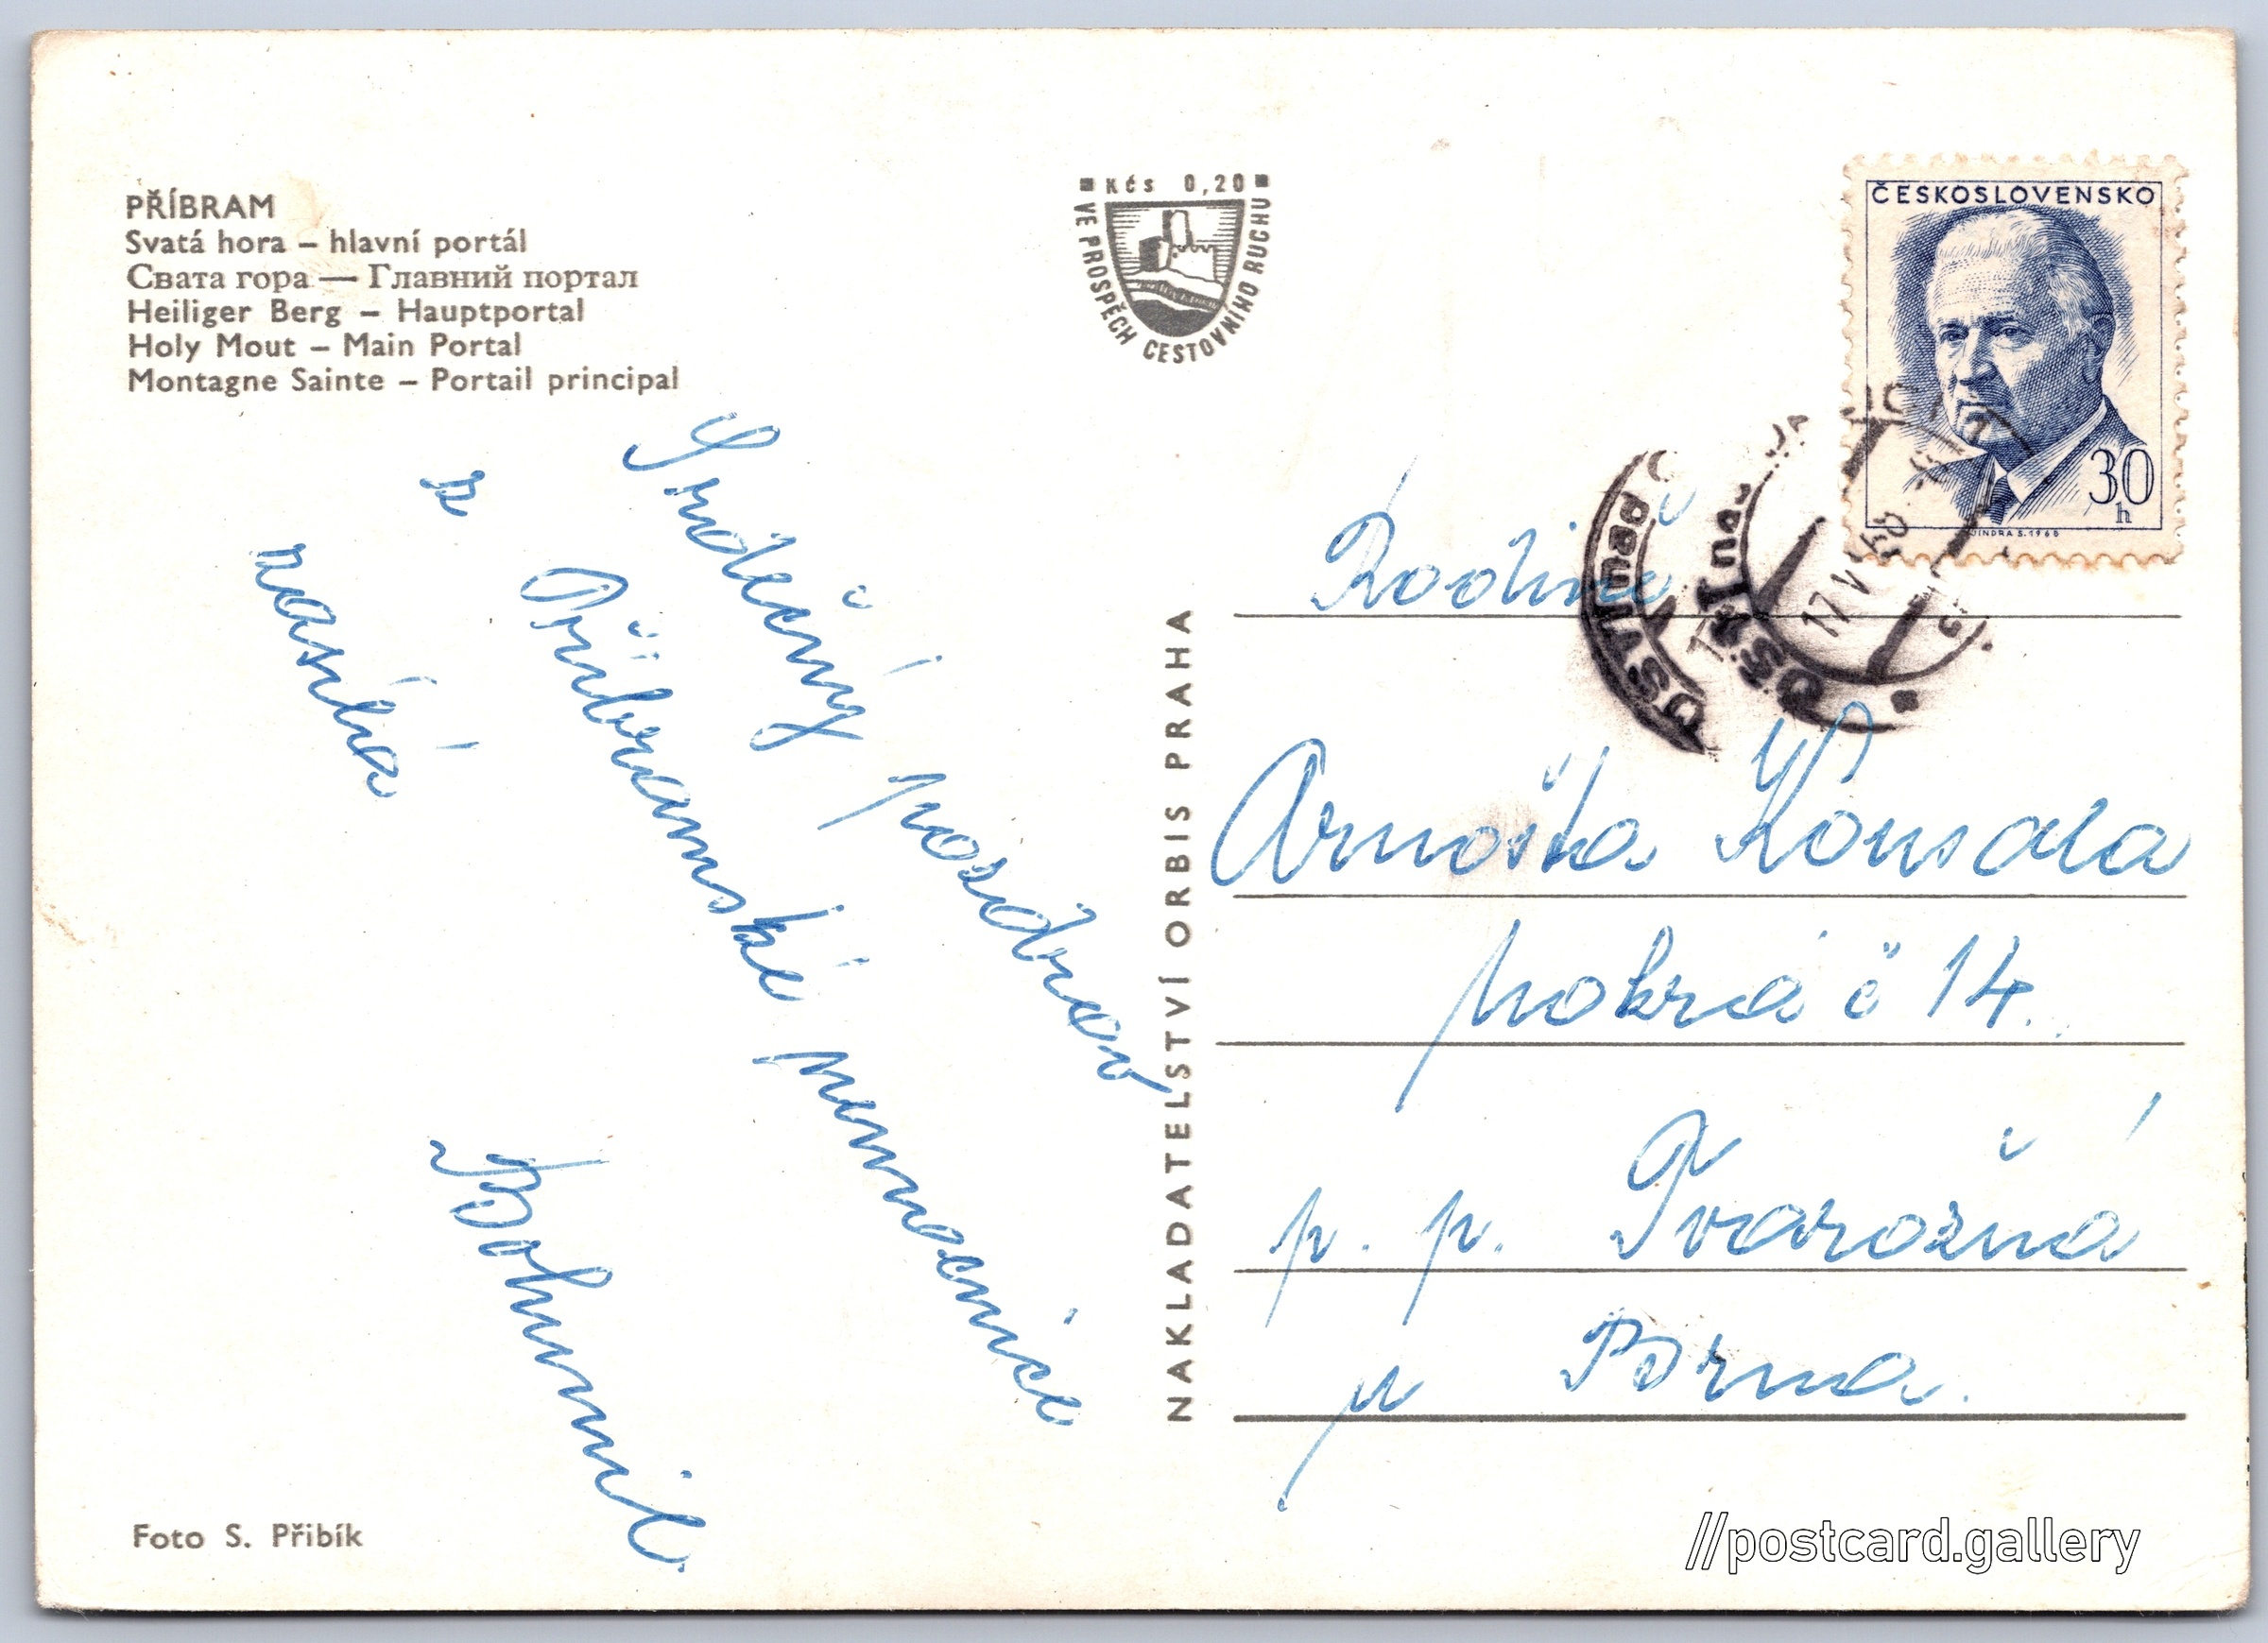 PŘÍBRAM
Svatá hora – hlavní portál
Свата гора — Главний портал
Heiliger Berg – Hauptportal
Holy Mout – Main Portal
Montagne Sainte – Portail principal
Srdečný pozdrav
z Příbramské nemocnice
zasílá
Bohumil
Foto S. Přibík
NAKLADATELSTVÍ ORBIS PRAHA
Kčs 0,20
VE PROSPĚCH CESTOVNÍHO RUCHU
ČESKOSLOVENSKO
30
h
JINDRA S. 1968
17 V
Rodina
Arnošta
Mokrá č 14.
p. p. Tvarožná
u Brna.
//postcard.gallery